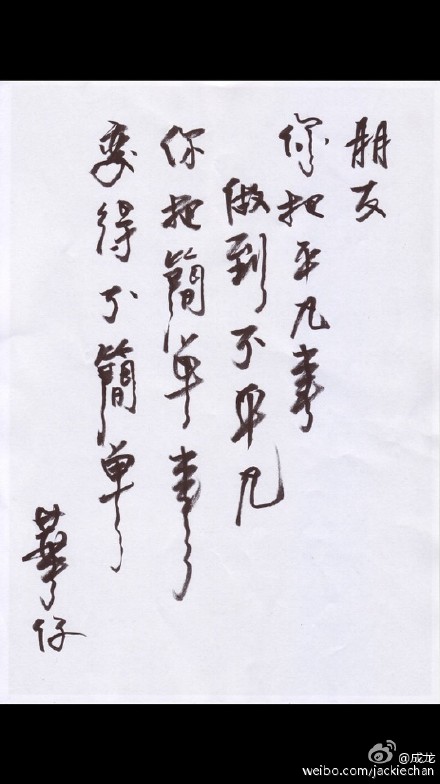 朋友
你把平凡事
做到不平凡
你把簡单事
变得不簡单
華仔
@成龙
weibo.com/jackiechan